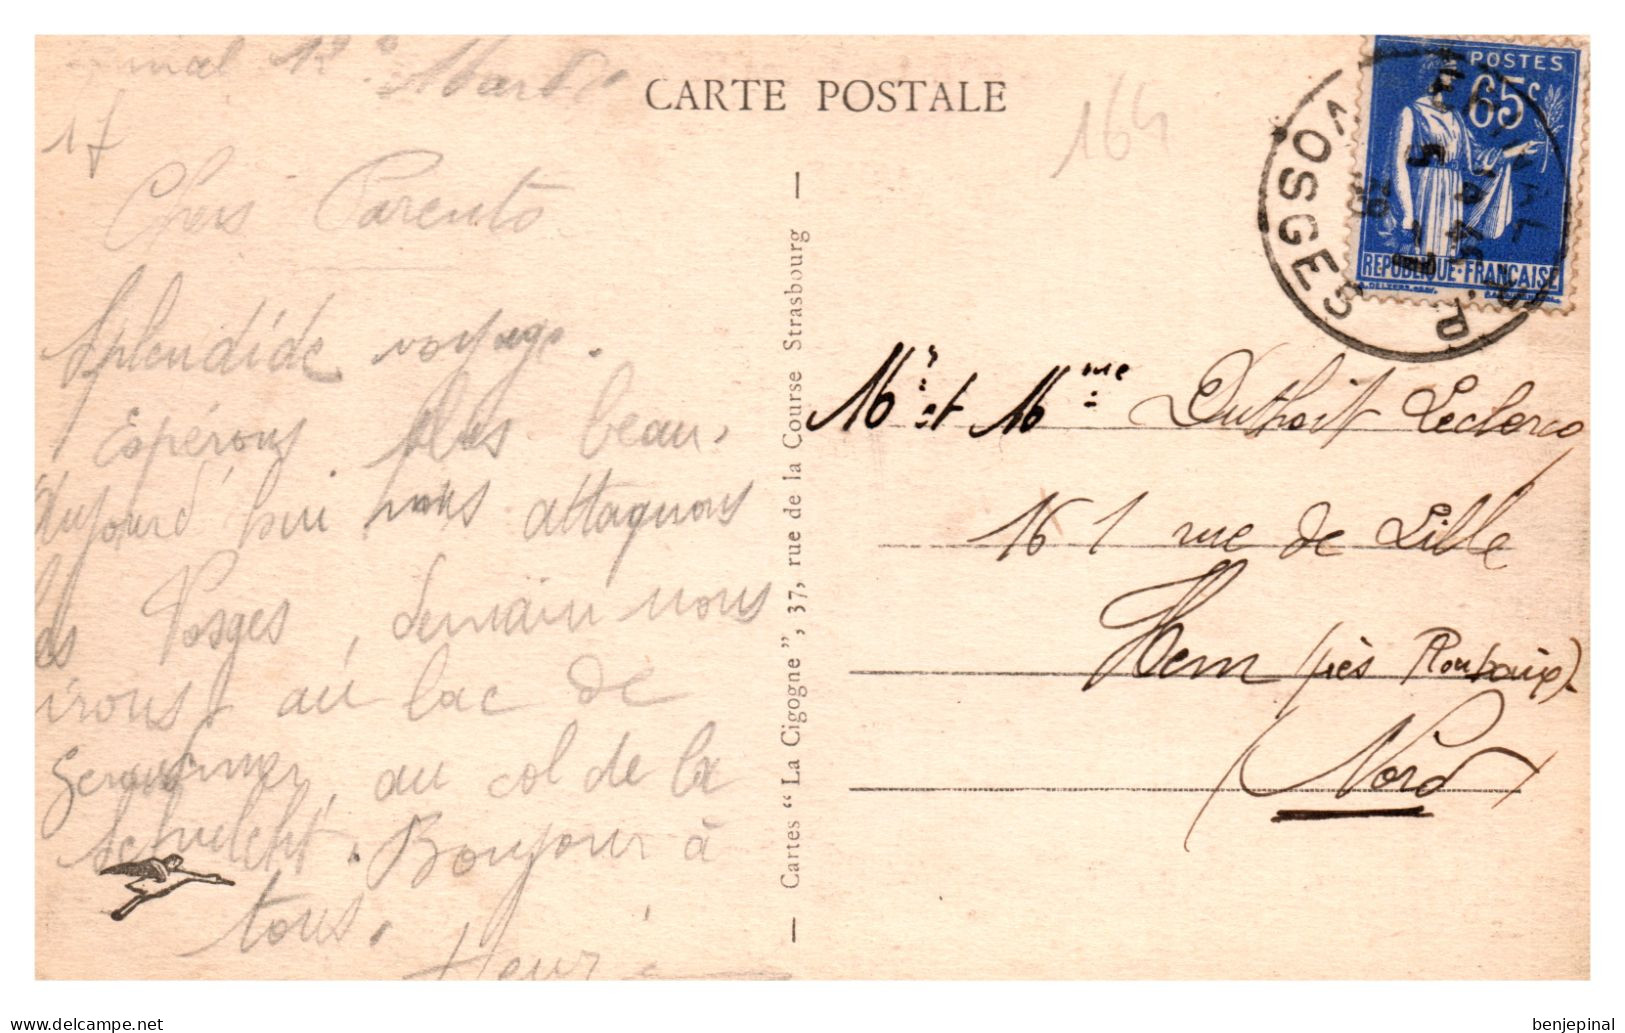 Mardi
CARTE POSTALE
164
17
Chers Parents
Splendide voyage.
Espérons plus beau.
Aujourd'hui nous attaquons
les Vosges, demain nous
irons au lac de
Gerardmer, au col de la
Schulcht. Bonjour à
tous.
Henri
— Cartes “La Cigogne”, 37, rue de la Course Strasbourg —
POSTES
65c
REPUBLIQUE·FRANÇAISE
VOSGES
Mr et Mme Duthoit Leclercq
161 rue de Lille
Hem (près Roubaix).
Nord
delcampe.net
benjepinal